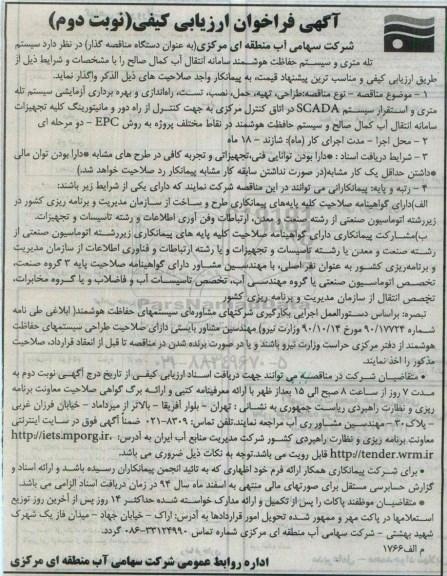 آگهی فراخوان ارزیابی کیفی(نوبت دوم)
شرکت سهامی آب منطقه ای مرکزی(به عنوان دستگاه مناقصه گذار) در نظر دارد سیستم
تله متری و سیستم حفاظت هوشمند سامانه انتقال آب کمال صالح را با مشخصات و شرایط ذیل از
طریق ارزیابی کیفی و مناسب ترین پیشنهاد قیمت، به پیمانکار واجد صلاحیت های ذیل الذکر واگذار نماید.
۱ - موضوع مناقصه - نوع مناقصه:طراحی، تهیه، حمل، نصب، تست، راه‌اندازی و بهره برداری آزمایشی سیستم تله
متری و استقرار سیستم SCADA در اتاق کنترل مرکزی به جهت کنترل از راه دور و مانیتورینگ کلیه تجهیزات
سامانه انتقال آب کمال صالح و سیستم حافظت هوشمند در نقاط مختلف پروژه به روش EPC - دو مرحله ای
۲ - محل اجرا - مدت اجرای کار (ماه): شازند - ۱۸ ماه
۳ - شرایط دریافت اسناد : *دارا بودن توانایی فنی،تجهیزاتی و تجربه کافی در طرح های مشابه *دارا بودن توان مالی
*داشتن حداقل یک کار مشابه(در صورت نداشتن سابقه کار مشابه پیمانکار رد صلاحیت خواهد شد)
۴ - رتبه و پایه: پیمانکارانی می توانند در این مناقصه شرکت نمایند که دارای یکی از شرایط زیر باشند:
الف)دارای گواهینامه صلاحیت کلیه پایه‌های پیمانکاری طرح و ساخت از سازمان مدیریت و برنامه ریزی کشور در
زیررشته اتوماسیون صنعتی از رشته صنعت و معدن، ارتباطات وفن آوری اطلاعات و رشته تاسیسات و تجهیزات.
ب)مشارکت پیمانکاری دارای گواهینامه صلاحیت کلیه پایه های پیمانکاری زیررشته اتوماسیون صنعتی از
رشته صنعت و معدن یا رشته تأسیسات و تجهیزات و یا رشته ارتباطات و فناوری اطلاعات از سازمان مدیریت
و برنامه‌ریزی کشور به عنوان نفر اصلی، با مهندسین مشاور دارای گواهینامه صلاحیت پایه ۳ گروه صنعت،
تخصص اتوماسیون صنعتی یا گروه مهندسی آب، تخصص تاسیسات آب و فاضلاب و یا گروه مخابرات،
تخصص انتقال از سازمان مدیریت و برنامه ریزی کشور
تبصره: براساس دستورالعمل اجرایی بکارگیری شرکتهای مشاوره‌ای سیستمهای حفاظت هوشمند( ابلاغی طی نامه
شماره ۹۰/۱۷۷۲۴ مورخ ۹۰/۱۰/۱۴ وزارت نیرو) مهندسین مشاور بایستی دارای صلاحیت طراحی سیستمهای حفاظت
هوشمند از دفتر مرکزی حراست وزارت نیرو باشند و یا در صورت برنده شدن در مناقصه تا قبل از انعقاد قرارداد، صلاحیت
مذکور را اخذ نمایند.
* متقاضیان شرکت در مناقصه می توانند جهت دریافت اسناد ارزیابی کیفی از تاریخ درج آگهی نوبت دوم به
مدت ۷ روز از ساعت ۸ صبح الی ۱۵ بعداز ظهر با ارائه معرفینامه کتبی و ارائه برگ گواهی صلاحیت معاونت برنامه
ریزی و نظارت راهبردی ریاست جمهوری به نشانی : تهران - بلوار آفریقا - بالاتر از میرداماد - خیابان فرزان غربی
- پلاک ۳۰ - مهندسین مشاور ری آب مراجعه نمایند.تلفن تماس: ۸۳۰۹-۰۲۱ ضمناً آگهی فوق در سایت اینترنتی
معاونت برنامه ریزی و نظارت راهبردی کشور شرکت مدیریت منابع آب ایران به آدرس: http://iets.mporg.ir،
http://tender.wrm.ir قابل رویت می باشد.توجه به نکات ذیل ضروری می باشد.
* برای شرکت پیمانکاری همکار ارائه فرم خود اظهاری که به تائید انجمن پیمانکاران رسیده باشد و ارائه اسناد و
گزارش حسابرسی مستقل برای صورتهای مالی منتهی به اسفند ماه سال ۹۴ در زمان دریافت اسناد الزامی می باشد.
* متقاضیان موظفند پاکات را پس از تکمیل و ارائه مدارک خواسته شده حداکثر ۱۴ روز پس از آخرین روز توزیع
استعلامها در پاکت مهر و ممهور شده تحویل امور قراردادها به آدرس: اراک - خیابان جهاد - میدان فاز یک شهرک
شهید بهشتی - شرکت سهامی آب منطقه ای مرکزی شماره تماس ۳۳۱۲۴۹۹۰-۰۸۶ گردد.
م الف۱۷۶۶
اداره روابط عمومی شرکت سهامی آب منطقه ای مرکزی